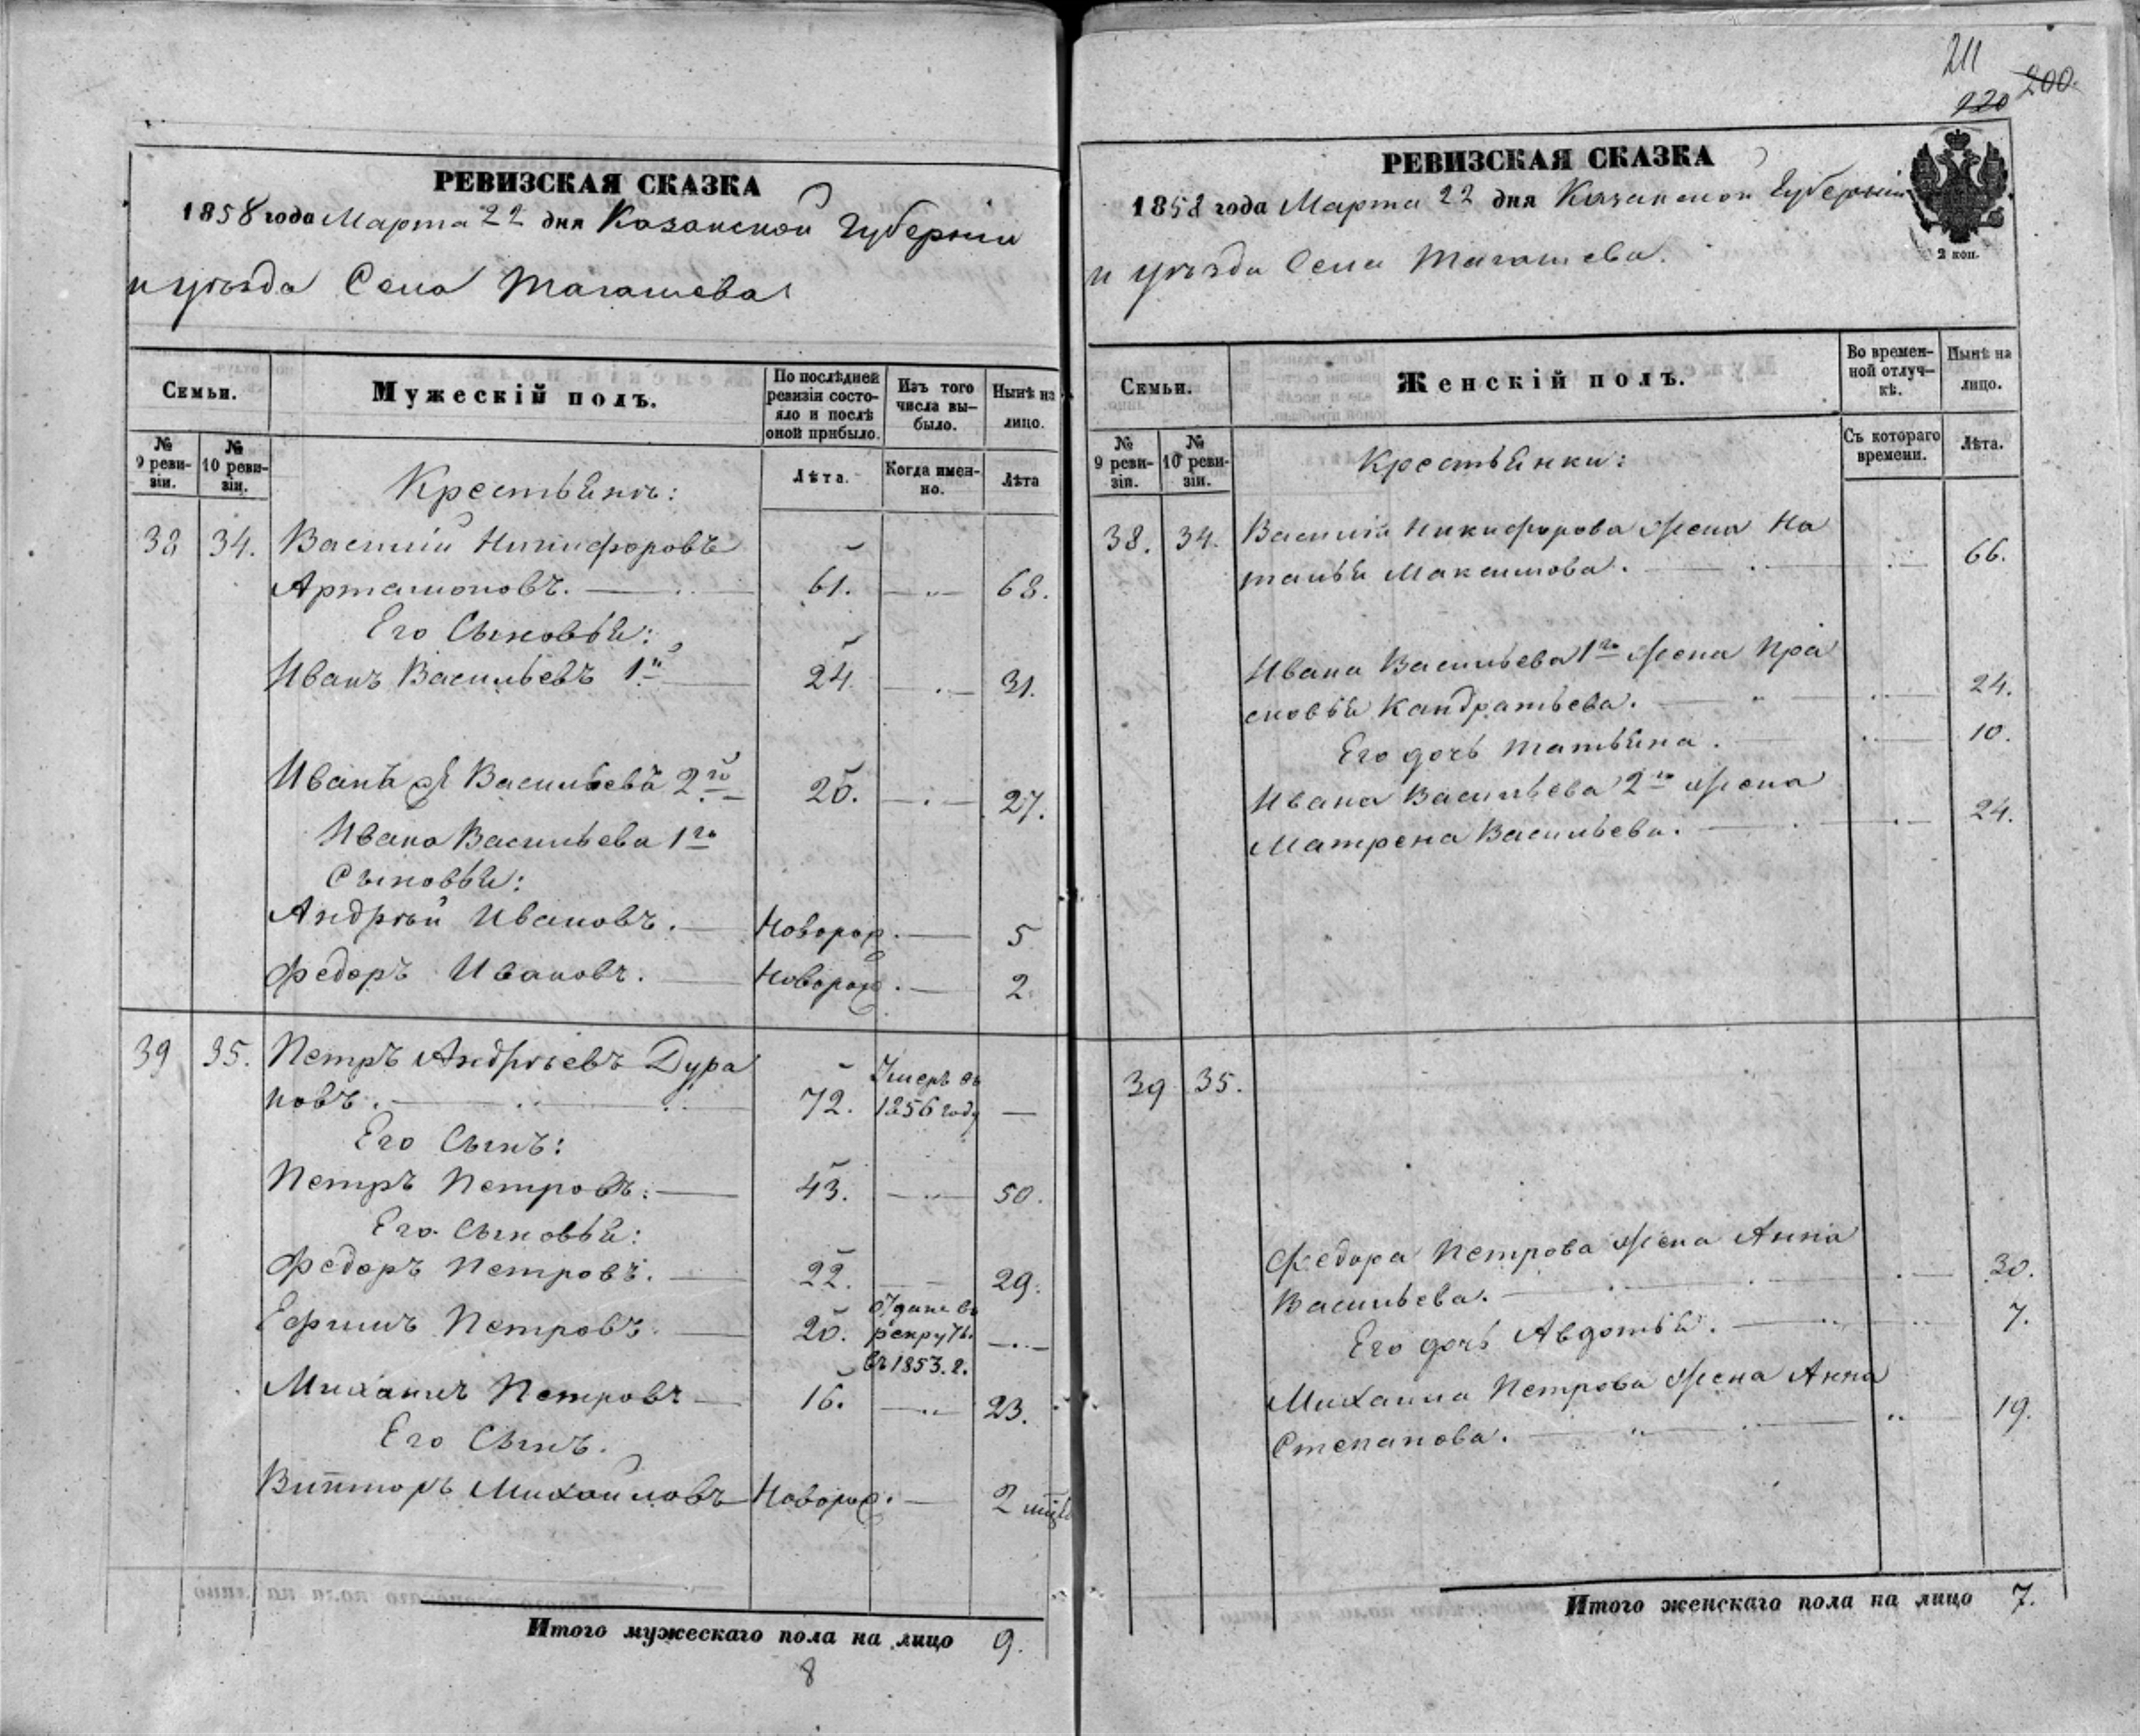 РЕВИЗСКАЯ СКАЗКА
1858 года Марта 22 дня Казанской Губерніи
и уѣзда Села Тагашева
Семьи.
№ 9 реви-
зіи.
№ 10 реви-
зіи.
Мужескій полъ.
По послѣдней
ревизіи состо-
яло и послѣ
оной прибыло.
Лѣта.
Изъ того
числа вы-
было.
Когда имен-
но.
Нынѣ на
лицо.
Лѣта
Крестьянъ:
38 34. Василій Никифоровъ
Артамоновъ. 61. 68.
Его Сыновья:
Иванъ Васильевъ 1й 24 31.
Иванъ Васильевъ 2й 20. 27.
Ивана Васильева 1го
Сыновья:
Андрей Ивановъ. Новорож. 5
Федоръ Ивановъ. Новорож. 2
39 35. Петръ Андрѣевъ Дура
новъ. 72. Умеръ въ
1856 году
Его Сынъ:
Петръ Петровъ: 43. 50.
Его Сыновья:
Федоръ Петровъ. 22. 29.
Ефимъ Петровъ. 20. Отданъ въ
рекруты
въ 1853. г.
Михаилъ Петровъ 16. 23.
Его Сынъ.
Викторъ Михайловъ Новорож. 2 мѣс
Итого мужескаго пола на лицо 9.
8
211
220 200.
РЕВИЗСКАЯ СКАЗКА
1858 года Марта 22 дня Казанской Губерніи
и уѣзда Села Тагашева.
2 коп.
Семьи.
№ 9 реви-
зіи.
№ 10 реви-
зіи.
Женскій полъ.
Во времен-
ной отлуч-
кѣ.
Съ котораго
времени.
Нынѣ на
лицо.
Лѣта.
Крестьянки:
38. 34. Василія Никифорова жена На
талья Максимова. 66.
Ивана Васильева 1го жена Пра
сковья Кандратьева. 24.
Его дочь Татьяна. 10.
Ивана Васильева 2го жена
Матрена Васильева. 24.
39 35.
Федора Петрова жена Анна
Васильева. 30.
Его дочь Авдотья. 7.
Михаила Петрова жена Анна
Степанова. 19.
Итого женскаго пола на лицо 7.